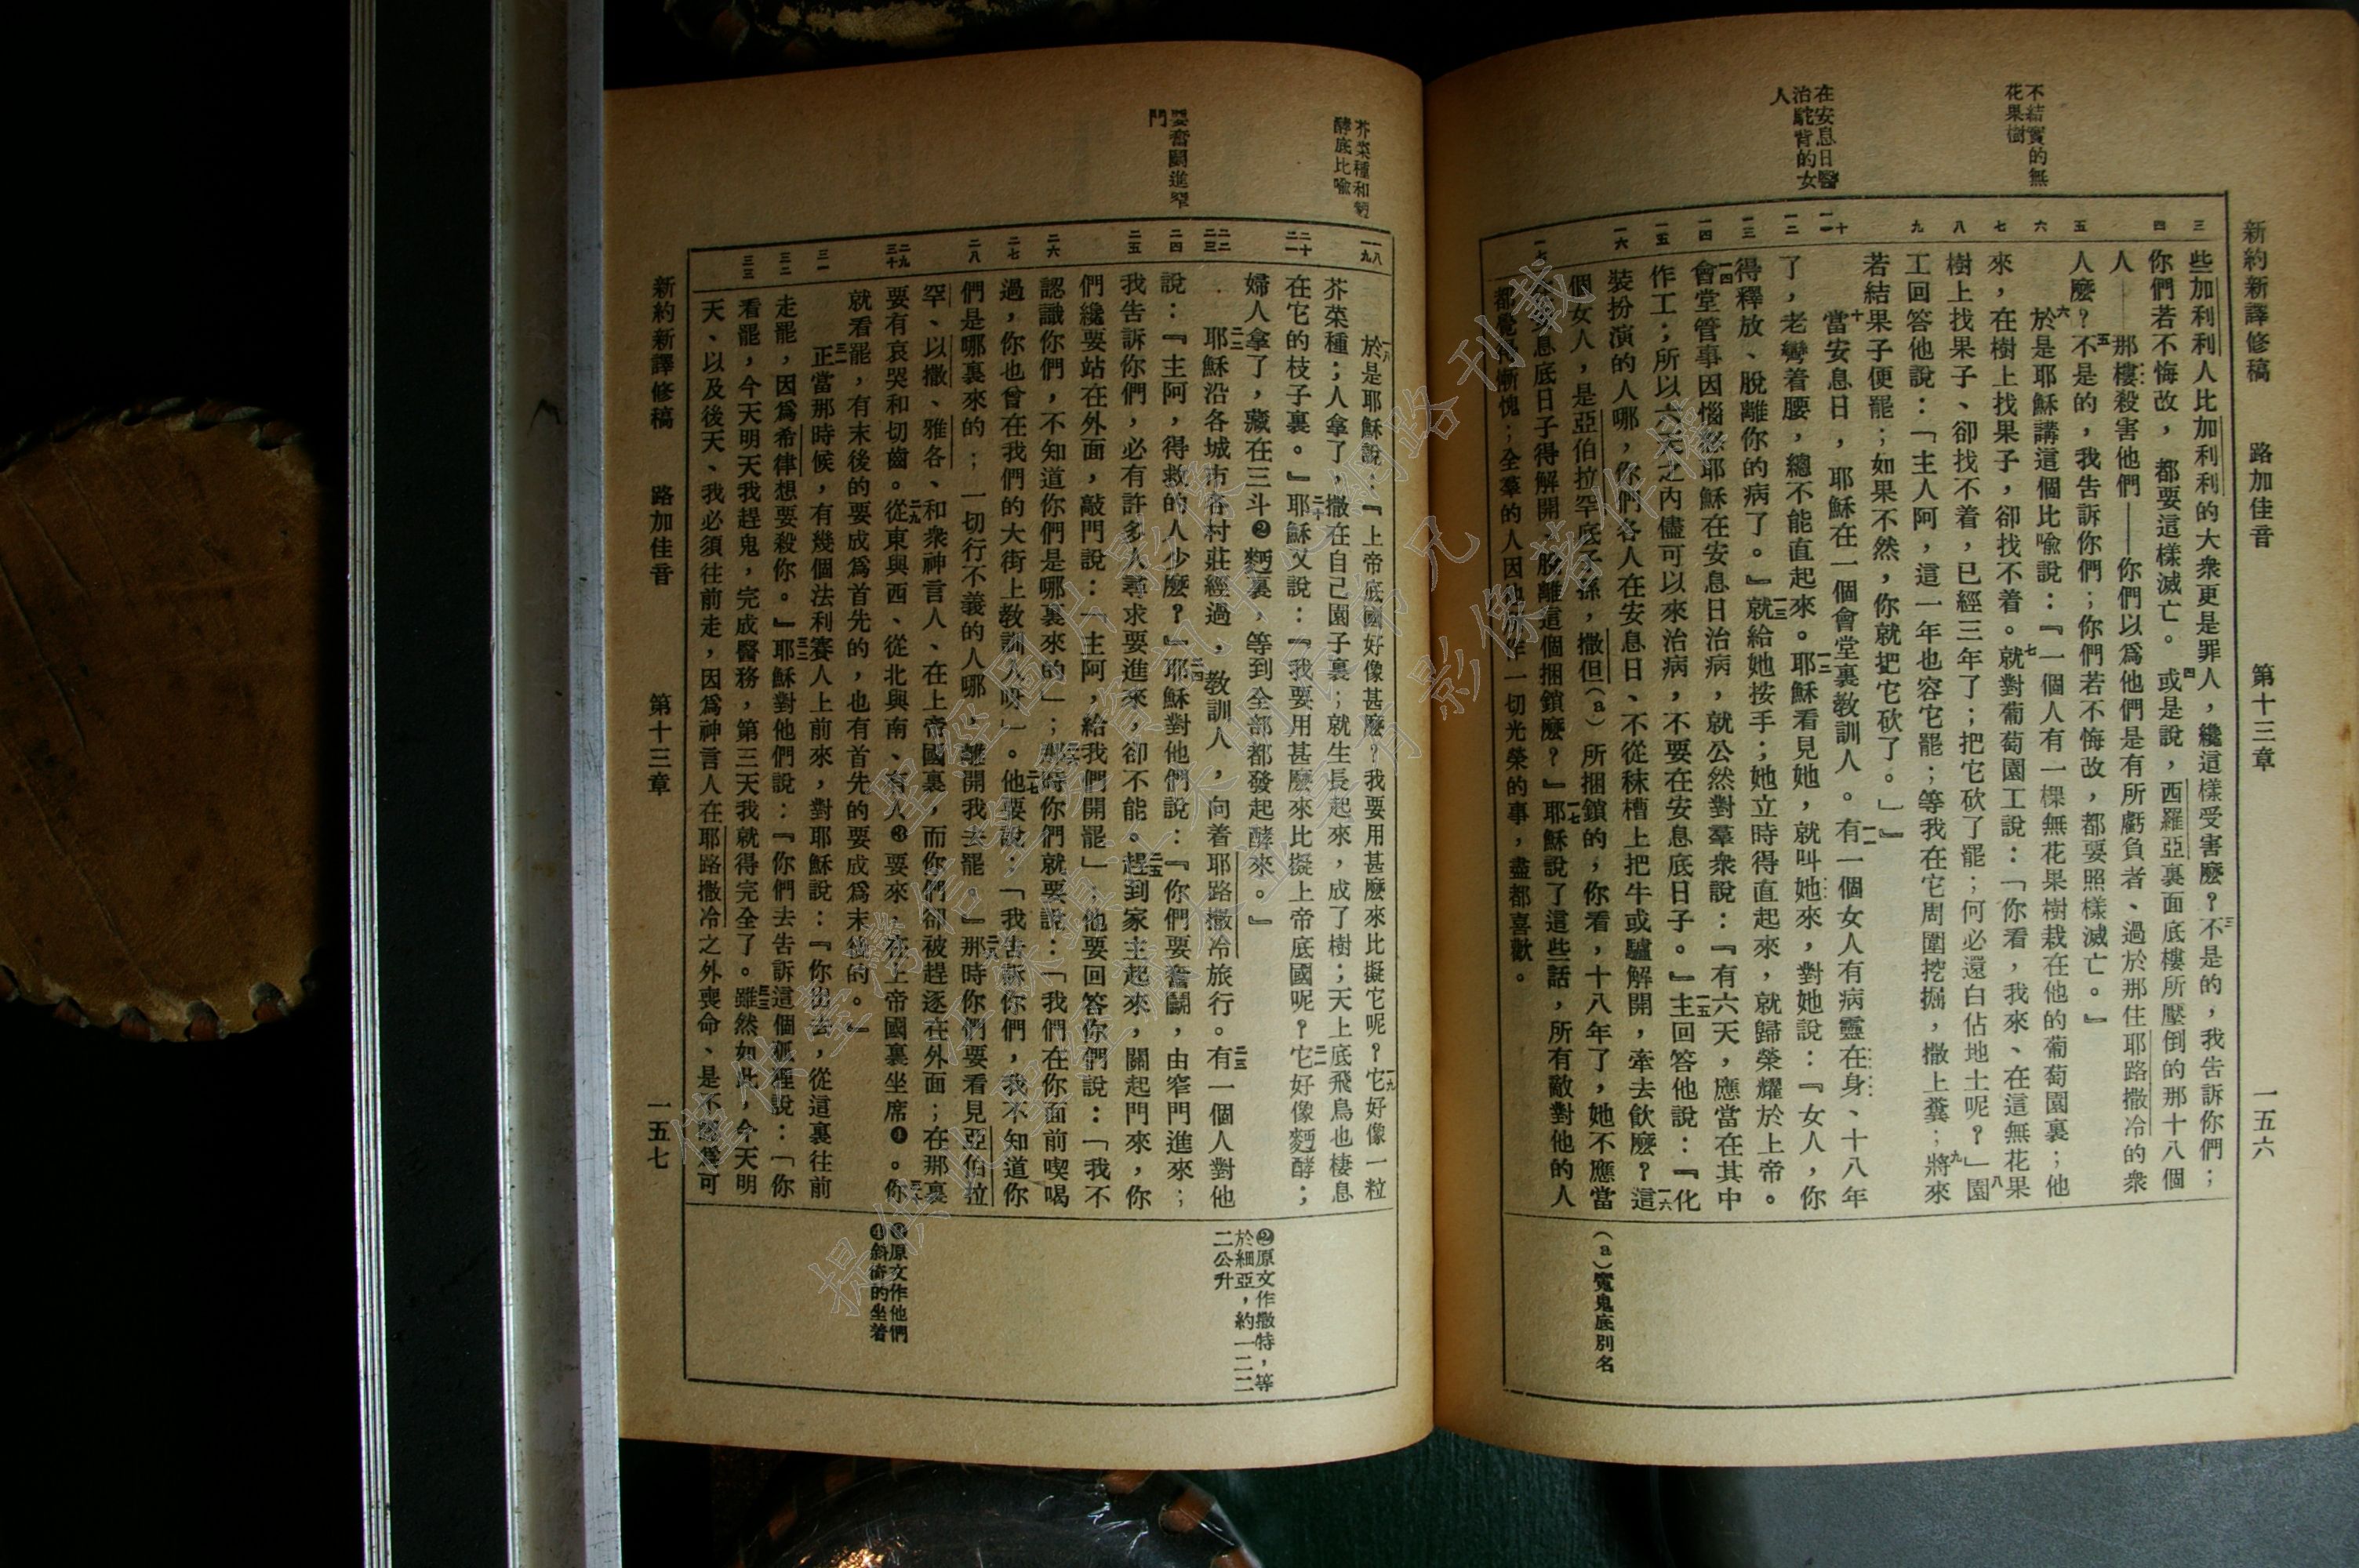 新約新譯修稿　路加佳音　第十三章　一五六
不結實的無
花果樹
在安息日醫
治駝背的女
人
三
四
五
六
七
八
九
十
一一
一二
一三
一四
一五
一六
一七
些加利利人比加利利的大衆更是罪人，纔這樣受害麼？三不是的，我告訴你們；
你們若不悔改，都要這樣滅亡。四或是說，西羅亞裏面底樓所壓倒的那十八個
人——那樓殺害他們——你們以爲他們是有所虧負者、過於那住耶路撒冷的衆
人麼？五不是的，我告訴你們；你們若不悔改，都要照樣滅亡。』
六於是耶穌講這個比喻說：『一個人有一棵無花果樹栽在他的葡萄園裏；他
來，在樹上找果子，卻找不着。七就對葡萄園工說：「你看，我來、在這無花果
樹上找果子、卻找不着，已經三年了；把它砍了罷；何必還白佔地土呢？」八園
工回答他說：「主人阿，這一年也容它罷；等我在它周圍挖掘，撒上糞；九將來
若結果子便罷；如果不然，你就把它砍了。」』
十當安息日，耶穌在一個會堂裏教訓人。一一有一個女人有病靈在身、十八年
了，老彎着腰，總不能直起來。一二耶穌看見她，就叫她來，對她說：『女人，你
得釋放、脫離你的病了。』一三就給她按手；她立時得直起來，就歸榮耀於上帝。
一四會堂管事因惱怒耶穌在安息日治病，就公然對羣衆說：『有六天，應當在其中
作工；所以六天之內儘可以來治病，不要在安息底日子。』一五主回答他說：『化
裝扮演的人哪，你們各人在安息日、不從秣槽上把牛或驢解開，牽去飲麼？一六這
個女人，是亞伯拉罕底子孫，撒但(a)所捆鎖的，你看，十八年了，她不應當
在安息底日子得解開、脫離這個捆鎖麼？』一七耶穌說了這些話，所有敵對他的人
都覺得慚愧；全羣的人因他所作一切光榮的事，盡都喜歡。
(a)魔鬼底別名
芥菜種和麪
酵底比喻
要奮鬭進窄
門
一八
一九
二十
二一
二二
二三
二四
二五
二六
二七
二八
二九
三十
三一
三二
三三
一八於是耶穌說：『上帝底國好像甚麼？我要用甚麼來比擬它呢？一九它好像一粒
芥菜種；人拿了，撒在自己園子裏；就生長起來，成了樹；天上底飛鳥也棲息
在它的枝子裏。』二十耶穌又說：『我要用甚麼來比擬上帝底國呢？二一它好像麪酵；
婦人拿了，藏在三斗❷麪裏，等到全部都發起酵來。』
二二耶穌沿各城市各村莊經過，教訓人，向着耶路撒冷旅行。二三有一個人對他
說：『主阿，得救的人少麼？』二四耶穌對他們說：『你們要奮鬭，由窄門進來；
我告訴你們，必有許多人尋求要進來，卻不能。二五趕到家主起來，關起門來，你
們纔要站在外面，敲門說：「主阿，給我們開罷」；他要回答你們說：「我不
認識你們，不知道你們是哪裏來的」；二六那時你們就要說：「我們在你面前喫喝
過，你也曾在我們的大街上教訓人呀」。二七他要說：「我告訴你們，我不知道你
們是哪裏來的；一切行不義的人哪，離開我去罷。』二八那時你們要看見亞伯拉
罕、以撒、雅各、和衆神言人、在上帝國裏，而你們卻被趕逐在外面；在那裏
要有哀哭和切齒。二九從東與西、從北與南、有人❸要來，在上帝國裏坐席❹。三十你
就看罷，有末後的要成爲首先的，也有首先的要成爲末後的。』
三一正當那時候，有幾個法利賽人上前來，對耶穌說：『你出去，從這裏往前
走罷，因爲希律想要殺你。』三二耶穌對他們說：『你們去告訴這個狐狸說：「你
看罷，今天明天我趕鬼，完成醫務，第三天我就得完全了。三三雖然如此，今天明
天、以及後天、我必須往前走，因爲神言人在耶路撒冷之外喪命、是不認爲可
❷原文作撒特，等
於細亞，約一二二
二公升
❸原文作他們
❹斜倚的坐着
新約新譯修稿　路加佳音　第十三章　一五七